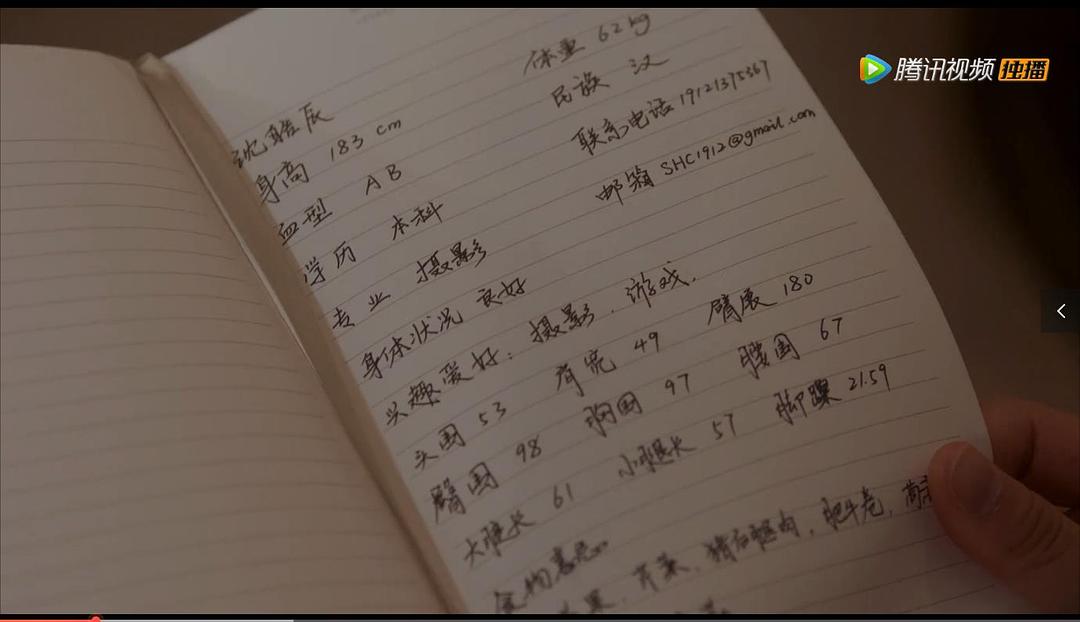 腾讯视频 独播
沈皓辰 体重 62kg
身高 183 cm 民族 汉
血型 AB 联系电话 19121375367
学历 本科 邮箱 SHC1912@gmail.com
专业 摄影
身体状况 良好
兴趣爱好：摄影、游戏.
头围 53 肩宽 49 臂展 180
臀围 98 胸围 97 腰围 67
大腿长 61 小腿长 57 脚踝 21.59
食物喜忌
芹菜、猪后腿肉，肥牛卷，